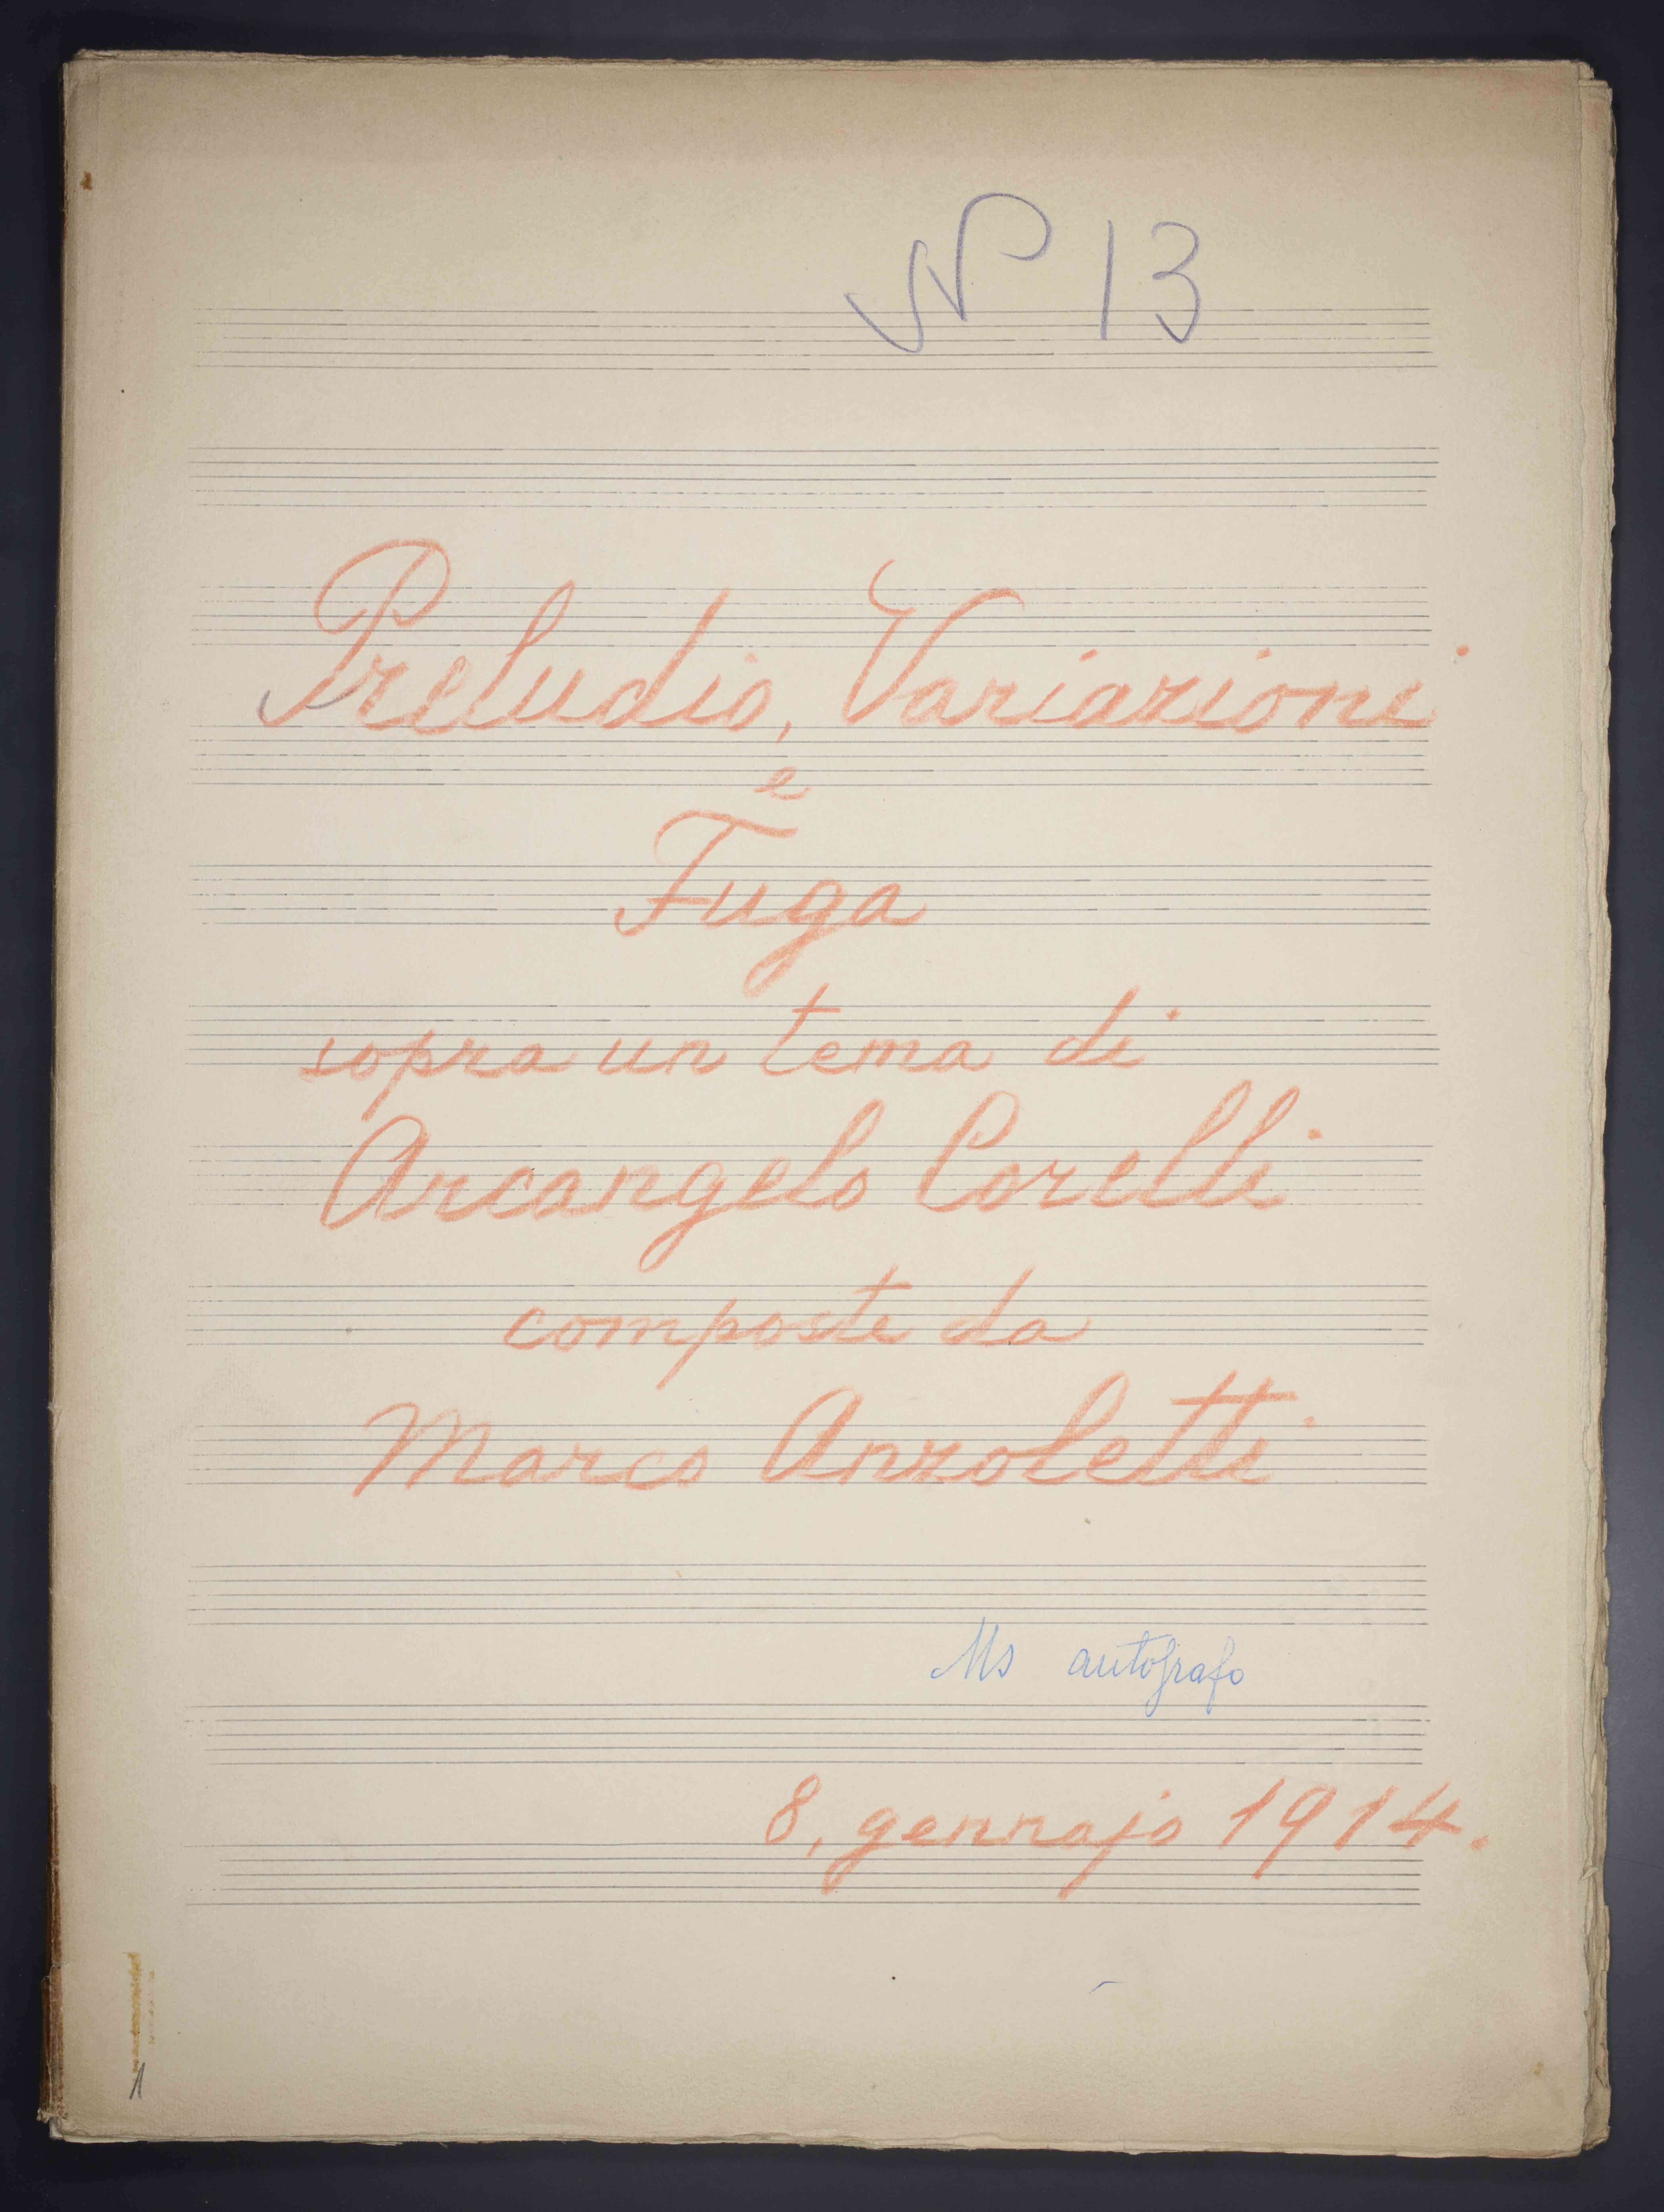 N° 13
Preludio, Variazioni
e
Fuga
sopra un tema di
Arcangelo Corelli
composte da
Marco Anzoletti
Ms autografo
8, gennajo 1914.
1